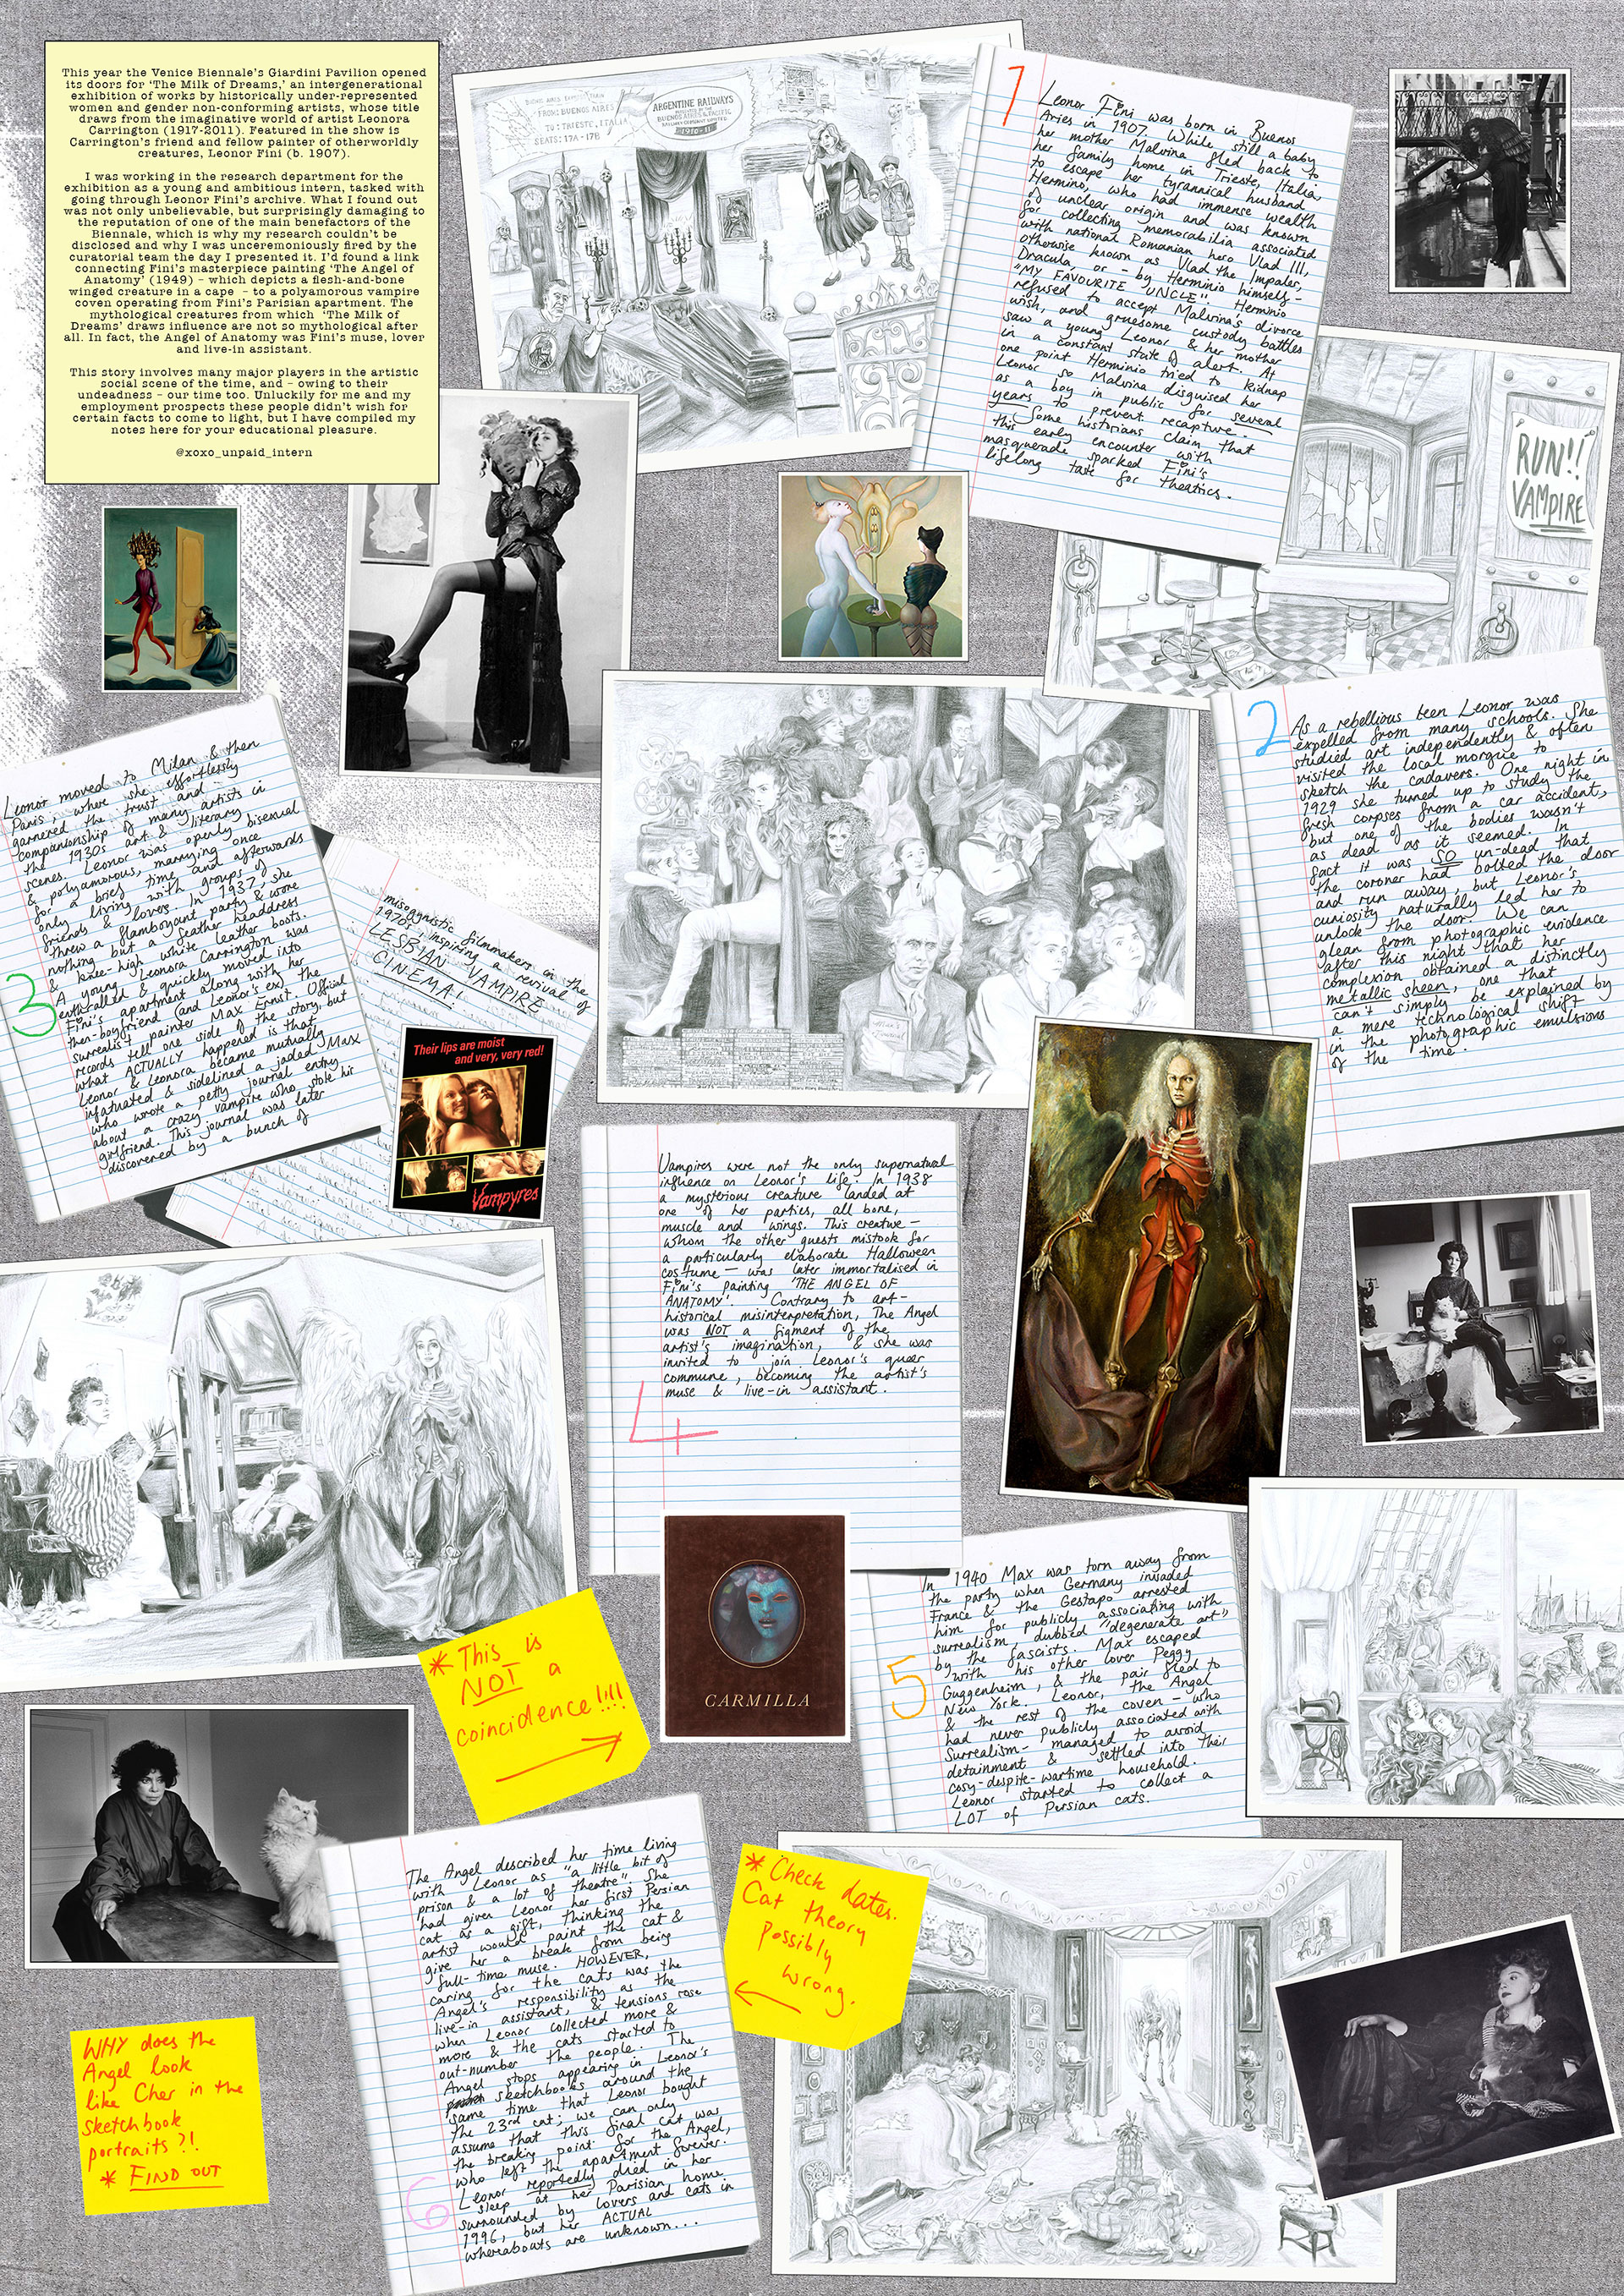 This year the Venice Biennale's Giardini Pavilion opened
its doors for 'The Milk of Dreams,' an intergenerational
exhibition of works by historically under-represented
women and gender non-conforming artists, whose title
draws from the imaginative world of artist Leonora
Carrington (1917-2011). Featured in the show is
Carrington's friend and fellow painter of otherworldly
creatures, Leonor Fini (b. 1907).
I was working in the research department for the
exhibition as a young and ambitious intern, tasked with
going through Leonor Fini's archive. What I found out
was not only unbelievable, but surprisingly damaging to
the reputation of one of the main benefactors of the
Biennale, which is why my research couldn't be
disclosed and why I was unceremoniously fired by the
curatorial team the day I presented it. I'd found a link
connecting Fini's masterpiece painting 'The Angel of
Anatomy' (1949) – which depicts a flesh-and-bone
winged creature in a cape – to a polyamorous vampire
coven operating from Fini's Parisian apartment. The
mythological creatures from which 'The Milk of
Dreams' draws influence are not so mythological after
all. In fact, the Angel of Anatomy was Fini's muse, lover
and live-in assistant.
This story involves many major players in the artistic
social scene of the time, and – owing to their
undeadness – our time too. Unluckily for me and my
employment prospects these people didn't wish for
certain facts to come to light, but I have compiled my
notes here for your educational pleasure.
@xoxo_unpaid_intern
FROM: BUENOS AIRES
TO: TRIESTE, ITALIA
SEATS: 17A - 17B
ARGENTINE RAILWAYS
BUENOS AIRES & PACIFIC
1910-11
1
Leonor Fini was born in Buenos
Aries in 1907. While still a baby
her mother Malvina fled back to
her family home in Trieste, Italia
to escape her tyrannical husband
Hermino, who had immense wealth
of unclear origin and was known
for collecting memorabilia associated
with national Romanian hero Vlad III,
otherwise known as Vlad the Impaler,
Dracula, or - by Herminio himself -
"MY FAVOURITE UNCLE". Herminio
refused to accept Malvina's divorce
wish, and gruesome custody battles
saw a young Leonor & her mother
in a constant state of alert. At
one point Herminio tried to kidnap
Leonor so Malvina disguised her
as a boy in public for several
years to prevent recapture.
Some historians claim that
this early encounter with
masquerade sparked Fini's
lifelong taste for theatrics.
RUN!!
VAMPIRE
2
As a rebellious teen Leonor was
expelled from many schools. She
studied art independently & often
visited the local morgue to
sketch the cadavers. One night in
1929 she turned up to study the
fresh corpses from a car accident,
but one of the bodies wasn't
as dead as it seemed. In
fact it was SO un-dead that
the coroner had bolted the door
and run away, but Leonor's
curiosity naturally led her to
unlock the door. We can
glean from photographic evidence
after this night that her
complexion obtained a distinctly
metallic sheen, one that
can't simply be explained by
a mere technological shift
in the photographic emulsions
of the time.
3
Leonor moved to Milan & then
Paris, where she effortlessly
garnered the trust and
companionship of many artists in
the 1930s art & literary
scenes. Leonor was openly bisexual
& polyamorous, marrying once
for a brief time and afterwards
only living with groups of
friends & lovers. In 1937, she
threw a flamboyant party & wore
nothing but a feather headdress
& knee-high white leather boots.
A young Leonora Carrington was
enthralled & quickly moved into
Fini's apartment along with her
then-boyfriend (and Leonor's ex) the
surrealist painter Max Ernst. Official
records tell one side of the story, but
what ACTUALLY happened is that
Leonor & Leonora became mutually
infatuated & sidelined a jaded Max
who wrote a petty journal entry
about a crazy vampire who stole his
girlfriend. This journal was later
discovered by a bunch of
misogynistic filmmakers in the
1970s, inspiring a revival of
LESBIAN VAMPIRE
CINEMA!
Their lips are moist
and very, very red!
Vampyres
Vampires were not the only supernatural
influence on Leonor's life. In 1938
a mysterious creature landed at
one of her parties, all bone,
muscle and wings. This creature -
whom the other guests mistook for
a particularly elaborate Halloween
costume - was later immortalised in
Fini's painting 'THE ANGEL OF
ANATOMY'. Contrary to art-
historical misinterpretation, The Angel
was NOT a figment of the
artist's imagination, & she was
invited to join Leonor's queer
commune, becoming the artist's
muse & live-in assistant.
4
* This is
NOT a
coincidence!!!!
CARMILLA
5
In 1940 Max was torn away from
the party when Germany invaded
France & the Gestapo arrested
him for publicly associating with
surrealism, dubbed "degenerate art"
by the fascists. Max escaped
with his other lover Peggy
Guggenheim, & the pair fled to
New York. Leonor, the Angel
& the rest of the coven - who
had never publicly associated with
Surrealism - managed to avoid
detainment & settled into their
cosy-despite-wartime household.
Leonor started to collect a
LOT of Persian cats.
The Angel described her time living
with Leonor as "a little bit of
prison & a lot of theatre". She
had given Leonor her first Persian
cat as a gift, thinking the
artist would paint the cat &
give her a break from being
full-time muse. HOWEVER,
caring for the cats was the
Angel's responsibility as the
live-in assistant, & tensions rose
when Leonor collected more &
more & the cats started to
out-number the people. The
Angel stops appearing in Leonor's
sketchbooks around the
same time that Leonor bought
the 23rd cat; we can only
assume that this final cat was
the breaking point for the Angel,
who left the apartment forever.
Leonor reportedly died in her
sleep at her Parisian home
surrounded by lovers and cats in
1996, but her ACTUAL
whereabouts are unknown...
6
* Check dates.
Cat theory
possibly
wrong.
WHY does the
Angel look
like Cher in the
sketchbook
portraits?!
* FIND OUT